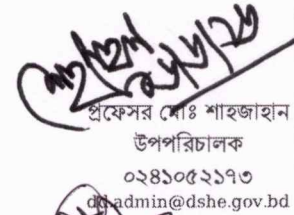 প্রফেসর মোঃ শাহজাহান
উপপরিচালক
০২৪১০৫২১৭৩
dd.admin@dshe.gov.bd